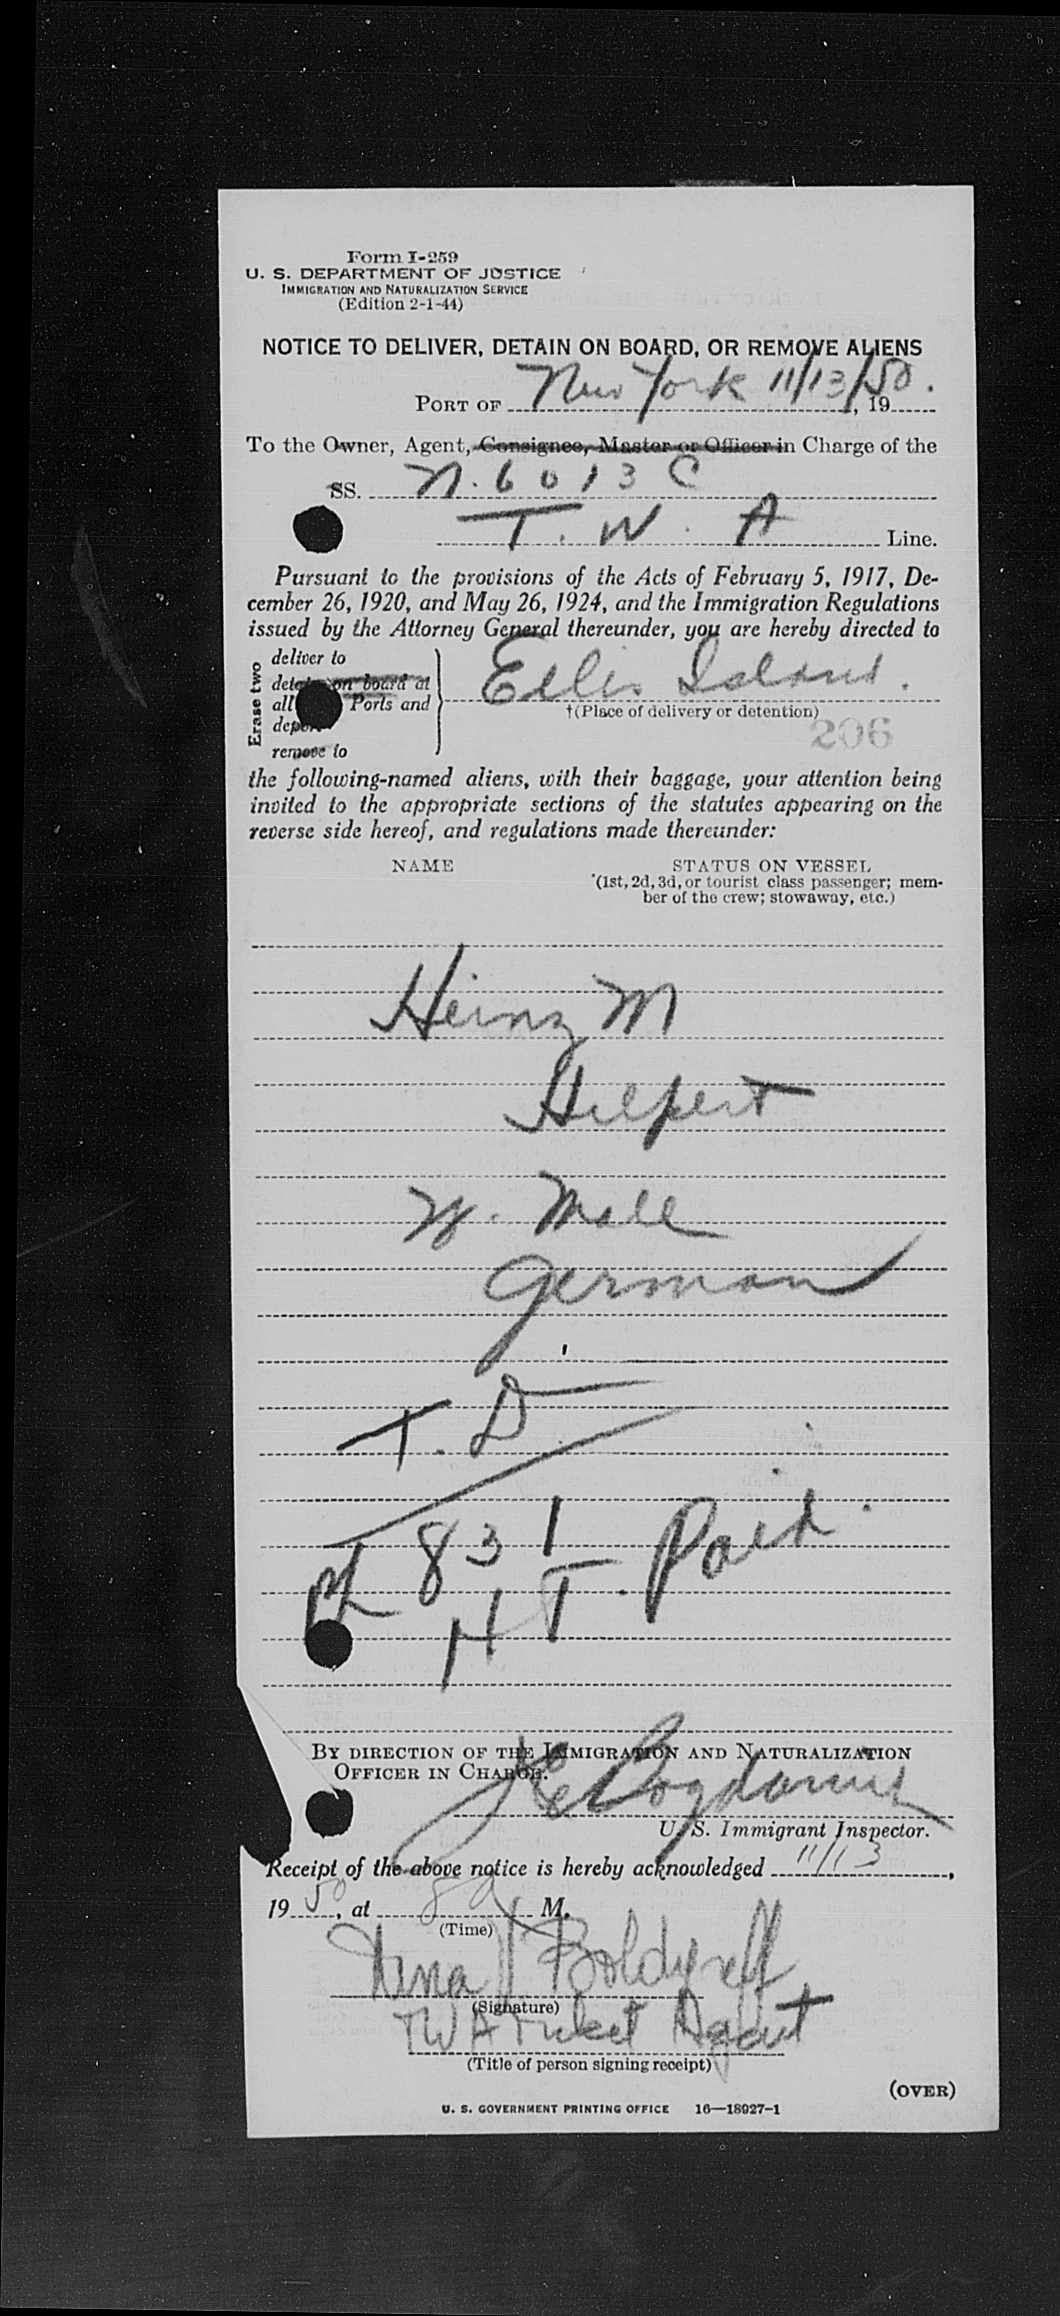 Form I-259
U. S. DEPARTMENT OF JUSTICE
IMMIGRATION AND NATURALIZATION SERVICE
(Edition 2-1-44)
NOTICE TO DELIVER, DETAIN ON BOARD, OR REMOVE ALIENS
PORT OF New York 11/13/50., 19
To the Owner, Agent, Consignee, Master or Officer in Charge of the
SS. N. 6013C
T. W. A Line.
Pursuant to the provisions of the Acts of February 5, 1917, De-
cember 26, 1920, and May 26, 1924, and the Immigration Regulations
issued by the Attorney General thereunder, you are hereby directed to
Erase two
deliver to
on board at
all Ports and
remove to
Ellis Island.
†(Place of delivery or detention)
206
the following-named aliens, with their baggage, your attention being
invited to the appropriate sections of the statutes appearing on the
reverse side hereof, and regulations made thereunder:
NAME STATUS ON VESSEL
(1st, 2d, 3d, or tourist class passenger; mem-
ber of the crew; stowaway, etc.)
Heinz M
Hilpert
W. Male
German
T. D.
831
HT. Paid.
BY DIRECTION OF THE IMMIGRATION AND NATURALIZATION
OFFICER IN CHARGE.
U. S. Immigrant Inspector.
Receipt of the above notice is hereby acknowledged 11/13,
19 50, at 8 a M.
(Time)
Nina Boldyreff
(Signature)
TWA Ticket Agent
(Title of person signing receipt)
(OVER)
U. S. GOVERNMENT PRINTING OFFICE 16—18927-1